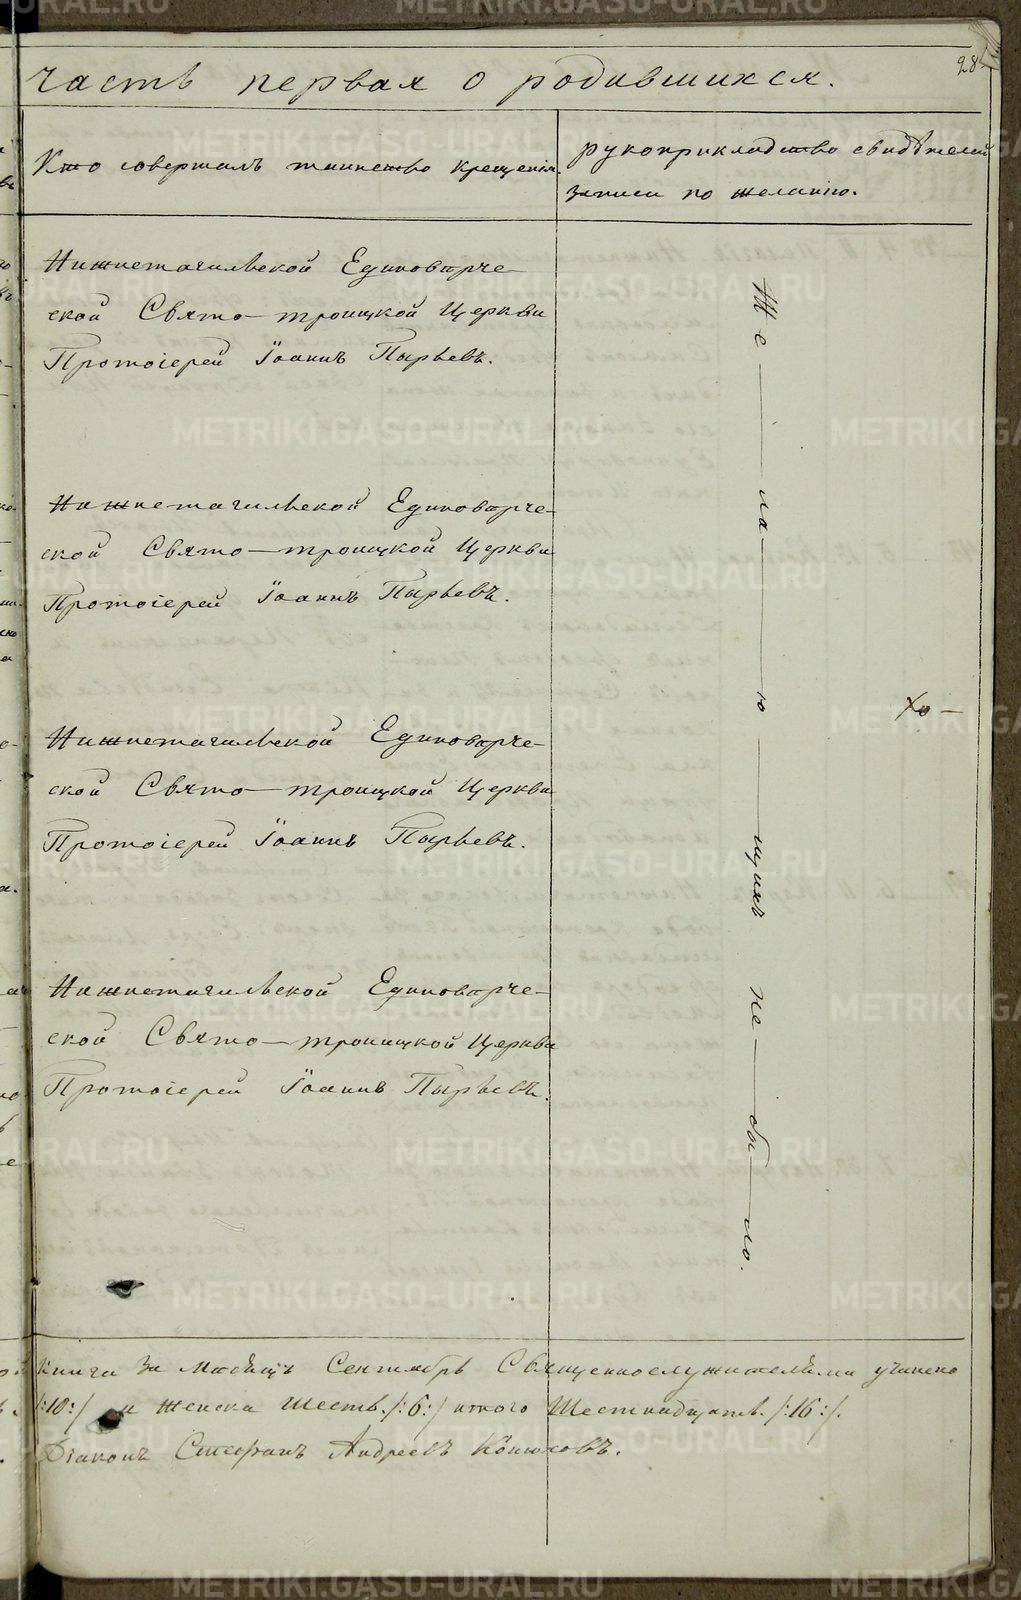 28
Часть первая о родившихся.
Кто совершалъ таинство крещенія.
рукоприкладство свидѣтелей
записи по желанію.
Нижнетагильской Единовѣрче-
ской Свято-троицкой Церкви
Протоіерей Іоаннъ Пырьевъ.
Нижнетагильской Единовѣрче-
ской Свято-троицкой Церкви
Протоіерей Іоаннъ Пырьевъ.
Нижнетагильской Единовѣрче-
ской Свято-троицкой Церкви
Протоіерей Іоаннъ Пырьевъ.
Нижнетагильской Единовѣрче-
ской Свято-троицкой Церкви
Протоіерей Іоаннъ Пырьевъ.
Же-ла-ю-щихъ не-бы-ло.
Хо-
книги За Мѣсяцъ Сентябрь Священнослужителями учинено
/:10:/ и Женска Шесть /:6:/ итого Шестнадцать /:16:/.
Діаконъ Стефанъ Андреевъ Конюховъ.
METRIKI.GASO-URAL.RU